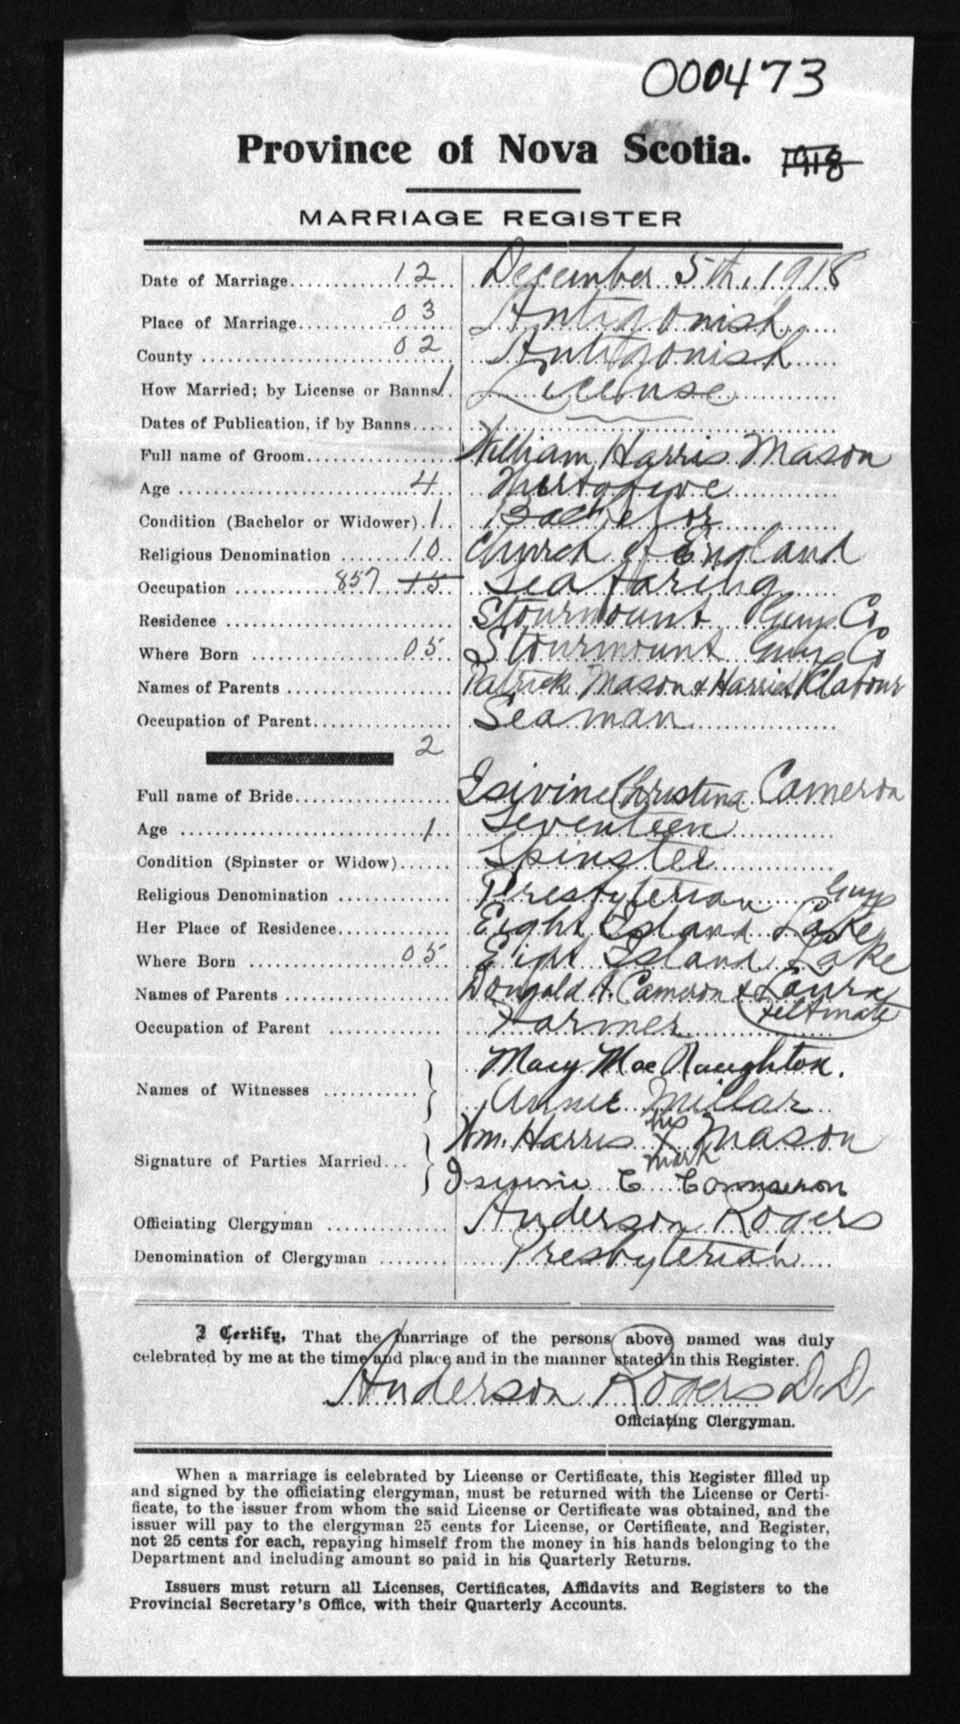 000473
Province of Nova Scotia. 1918
MARRIAGE REGISTER
Date of Marriage 12 December 5th, 1918
Place of Marriage 03 Antigonish
County 02 Antigonish
How Married; by License or Banns 1 License
Dates of Publication, if by Banns
Full name of Groom William Harris Mason
Age 4
Condition (Bachelor or Widower) 1 Bachelor
Religious Denomination 10 Church of England
Occupation 857 15 Sea faring
Residence Stourmount Guys Co
Where Born 05 Stourmount Guys Co
Names of Parents Patrick Mason & Harriet
Occupation of Parent Seaman
2
Full name of Bride Isivine Christina Cameron
Age 1 Seventeen
Condition (Spinster or Widow) Spinster
Religious Denomination Presbyterian
Guys
Her Place of Residence Eight Island Lake
Where Born 05 Eight Island Lake
Names of Parents Dougald A. Cameron & Laura
Occupation of Parent Farmer
Names of Witnesses Mary MacNaughton.
Annie Millar
Signature of Parties Married Wm. Harris his X mark Mason
C Cammeron
Officiating Clergyman Anderson Rogers
Denomination of Clergyman Presbyterian
I Certify, That the marriage of the persons above named was duly
celebrated by me at the time and place and in the manner stated in this Register.
Anderson Rogers D.D.
Officiating Clergyman.
When a marriage is celebrated by License or Certificate, this Register filled up
and signed by the officiating clergyman, must be returned with the License or Certi-
ficate, to the issuer from whom the said License or Certificate was obtained, and the
issuer will pay to the clergyman 25 cents for License, or Certificate, and Register,
not 25 cents for each, repaying himself from the money in his hands belonging to the
Department and including amount so paid in his Quarterly Returns.
Issuers must return all Licenses, Certificates, Affidavits and Registers to the
Provincial Secretary's Office, with their Quarterly Accounts.